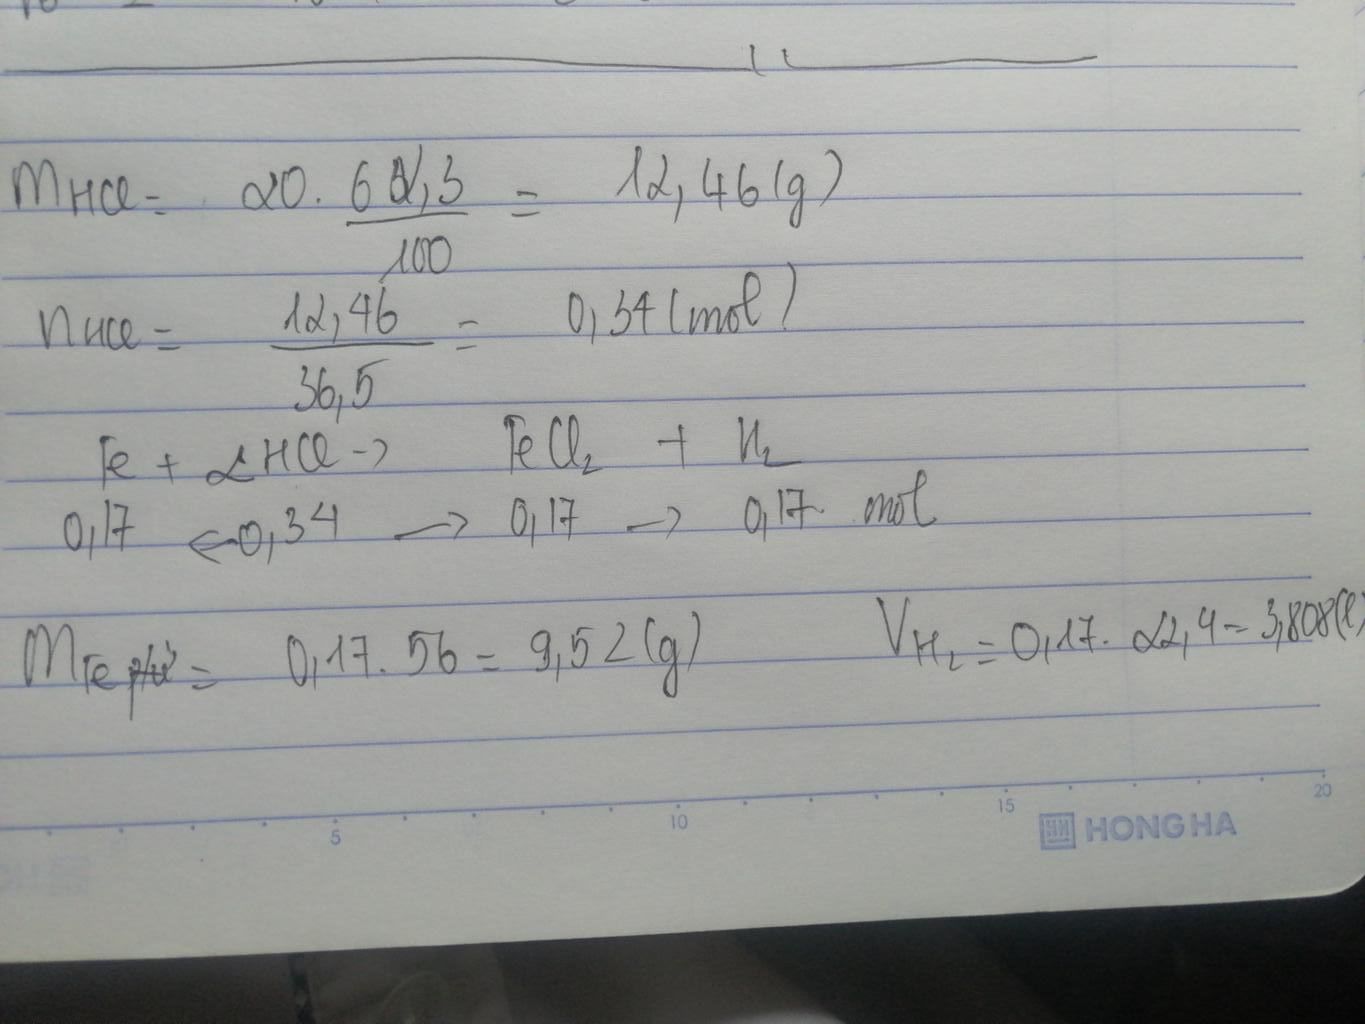 mHCl = 20 . 62,3/100 = 12,46 (g)
nHCl = 12,46/36,5 = 0,34 (mol)
Fe + 2HCl → FeCl2 + H2
0,17 ← 0,34 → 0,17 → 0,17 mol
mFe = 0,17 . 56 = 9,52 (g) VH2 = 0,17 . 22,4 = 3,808 (l)
5 10 15 20
HONG HA